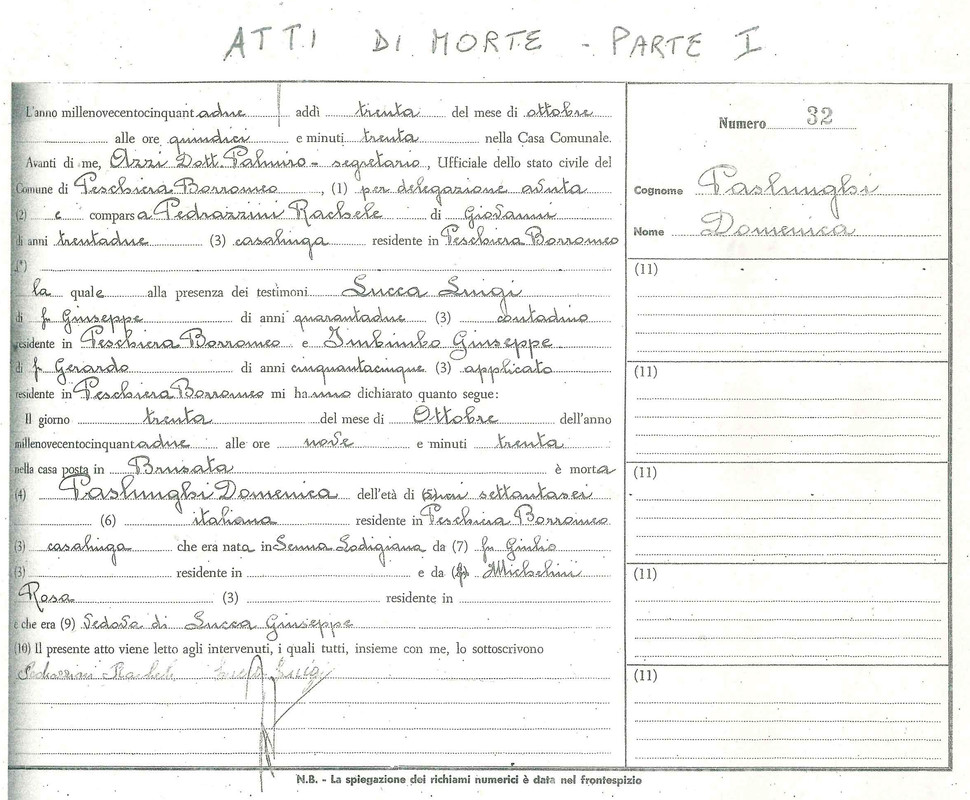 ATTI DI MORTE - PARTE I
L'anno millenovecentocinquantadue addì trenta del mese di ottobre
alle ore quindici e minuti trenta nella Casa Comunale.
Avanti di me, Azzi Dott. Palmiro - segretario, Ufficiale dello stato civile del
Comune di Peschiera Borromeo, (1) per delegazione avuta
(2) è comparsa Pedrazzini Rachele di Giovanni
di anni trentadue (3) casalinga residente in Peschiera Borromeo
la quale alla presenza dei testimoni Lucca Luigi
di fu Giuseppe di anni quarantadue (3) contadino
residente in Peschiera Borromeo e Imbimbo Giuseppe
di fu Gerardo di anni cinquantacinque (3) applicato
residente in Peschiera Borromeo mi hanno dichiarato quanto segue:
Il giorno trenta del mese di Ottobre dell'anno
millenovecentocinquantadue alle ore nove e minuti trenta
nella casa posta in Brusata è morta
(4) Paslunghi Domenica dell'età di (5) anni settantasei
(6) italiana residente in Peschiera Borromeo
(3) casalinga che era nata in Senna Lodigiana da (7) fu Giulio
(3) residente in e da (8) Michelini
Rosa (3) residente in
e che era (9) vedova di Lucca Giuseppe
(10) Il presente atto viene letto agli intervenuti, i quali tutti, insieme con me, lo sottoscrivono
Pedrazzini Rachele Lucca Luigi
Numero 32
Cognome Paslunghi
Nome Domenica
(11)
(11)
(11)
(11)
(11)
N.B. - La spiegazione dei richiami numerici è data nel frontespizio